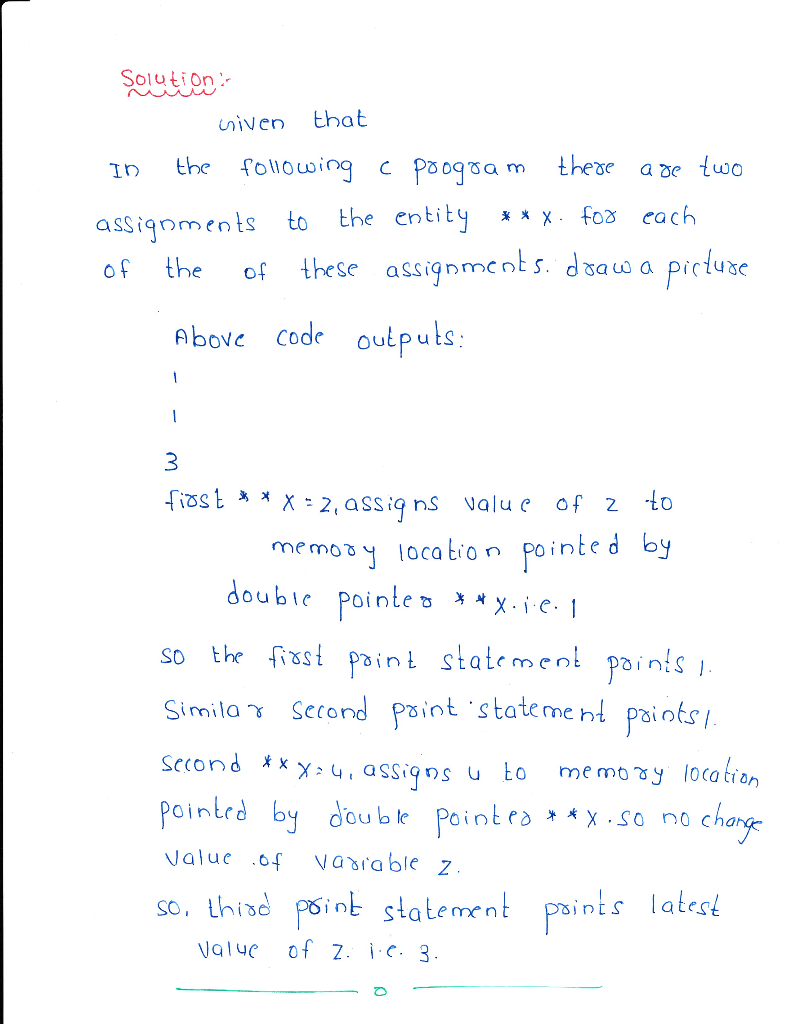 Solution:-
Given that
In the following c program there are two
assignments to the entity **x. for each
of the of these assignments. draw a picture
Above code outputs:
1
1
3
first **x=z, assigns value of z to
memory location pointed by
double pointer **x.i.e. 1
so the first print statement prints 1.
Similar second print statement prints 1.
Second **x=4, assigns 4 to memory location
pointed by double pointer **x. so no change
value of variable z.
so, third print statement prints latest
value of z. i.e. 3.